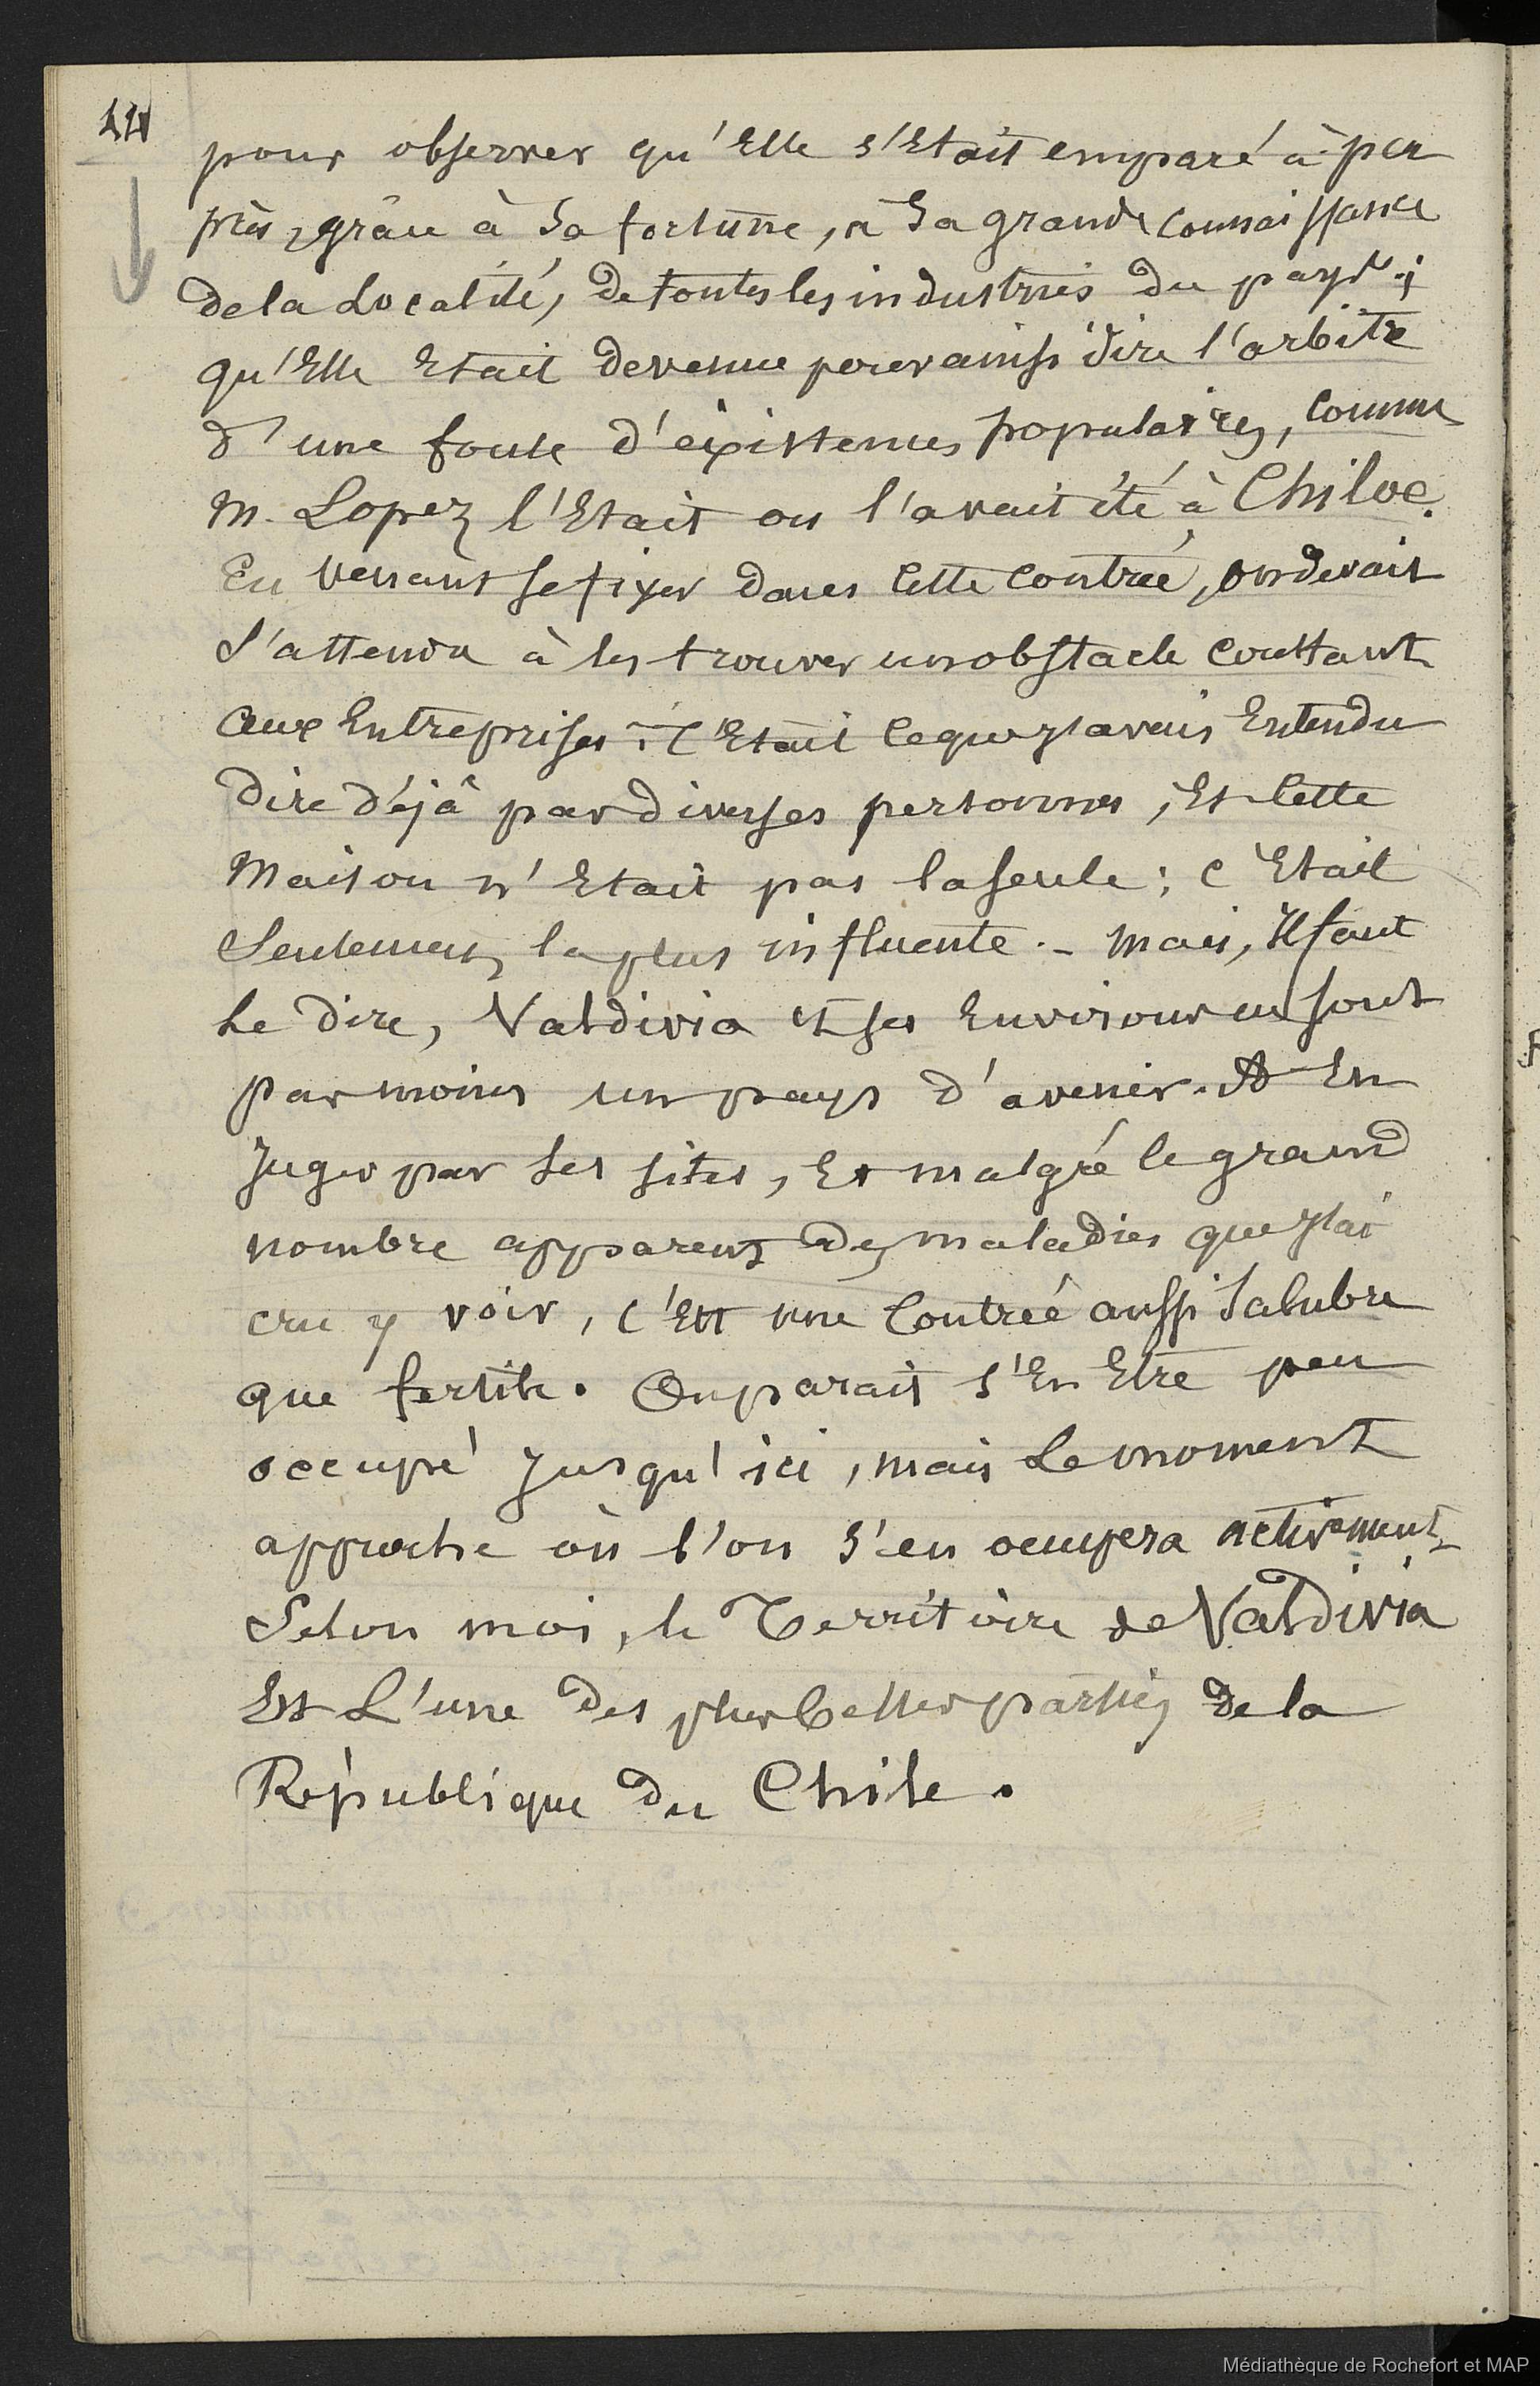 pour observer qu'Elle s'Etait emparé à-peu
près, grâce à sa fortune, à sa grande connaissance
de la Localité, de toutes les industries du pays ;
qu'Elle Etait devenue pour ainsi dire l'arbitre
d'une foule d'existences populaires, comme
M. Lopez l'Etait ou l'avait été à Chiloe.
En venant se fixer dans cette contrée, on devait
s'attendre à les trouver un obstacle constant
aux Entreprises. C'Etait ce que j'avais Entendu
dire déjà par diverses personnes, Et cette
Maison n'Etait pas la seule ; c'Etait
seulement la plus influente. - Mais, il faut
le dire, Valdivia et ses Environs n'en sont
pas moins un pays d'avenir. A En
juger par ses sites, Et malgré le grand
nombre apparent des maladies que j'ai
cru y voir, c'Est une contrée aussi salubre
que fertile. On parait s'En Etre peu
occupé jusqu'ici, mais le moment
approche où l'on s'en occupera activement.
Selon moi, le Territoire de Valdivia
Est l'une des plus belles parties de la
République du Chile.
Médiathèque de Rochefort et MAP